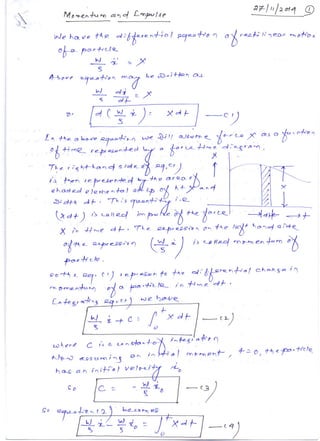 Momentum and Impulse
27/11/2019 ①
We have the differential equation of rectilinear motion
of a particle
W/g ẍ = X
Above equation may be written as
W/g dẋ/dt = X
or d (W/g ẋ) = X dt —(1)
In the above equation we will assume force X as a function
of time represented by a force time diagram.
The right hand side of eq.(1)
is then represented by the area of
shaded elemental strip of ht X and
width dt. This quantity i.e
(Xdt) is called impulse of the force
X in time dt. The expression on the left hand side
of the expression (W/g ẋ) is called momentum of
particle.
So the eq. (1) represents the differential change in
momentum of a particle in time dt.
Integrating eq.(1) we have
W/g ẋ + C = ∫₀ᵗ X dt —(2)
where C is a constant of integration
Now assuming an initial moment, t=0, the particle
has an initial velocity ẋ₀
So C = - W/g ẋ₀ —(3)
So equation (2) becomes
W/g ẋ - W/g ẋ₀ = ∫₀ᵗ X dt —(4)
X
X
dt
t